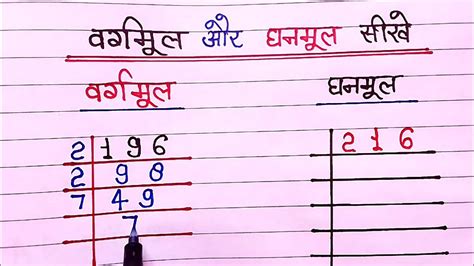 वर्गमूल और घनमूल सीखे
वर्गमूल
2 196
2 98
7 49
7
घनमूल
216